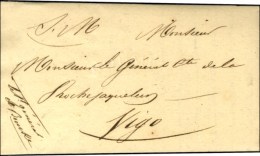 S. M. Monsieur
Monsieur le Général Cte de la
Rochejaquelein
Vigo